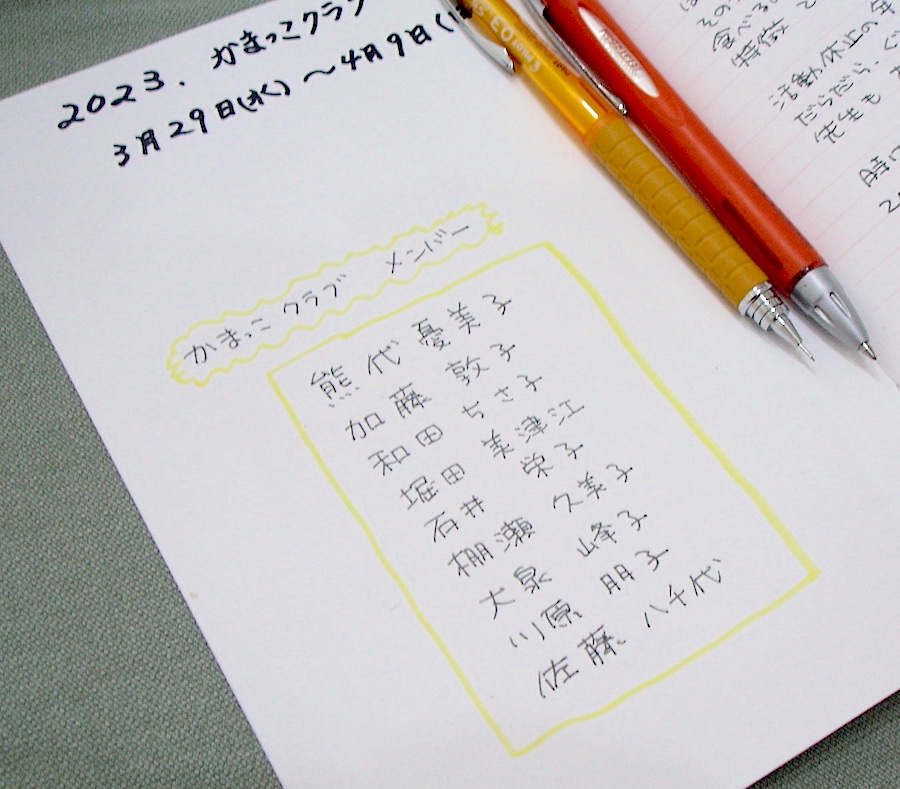 2023. かまっこクラブ
3月29日(水)～4月9日(
かまっこ クラブ メンバー
熊代 憂美子
加藤 敦子
和田 ちさ子
堀田 美津江
石井 栄子
棚瀬 久美子
大泉 峰子
川原 朋子
佐藤 八千代
その
食べる
特徴
活動休止の年
だらだら、ぐ
先生も